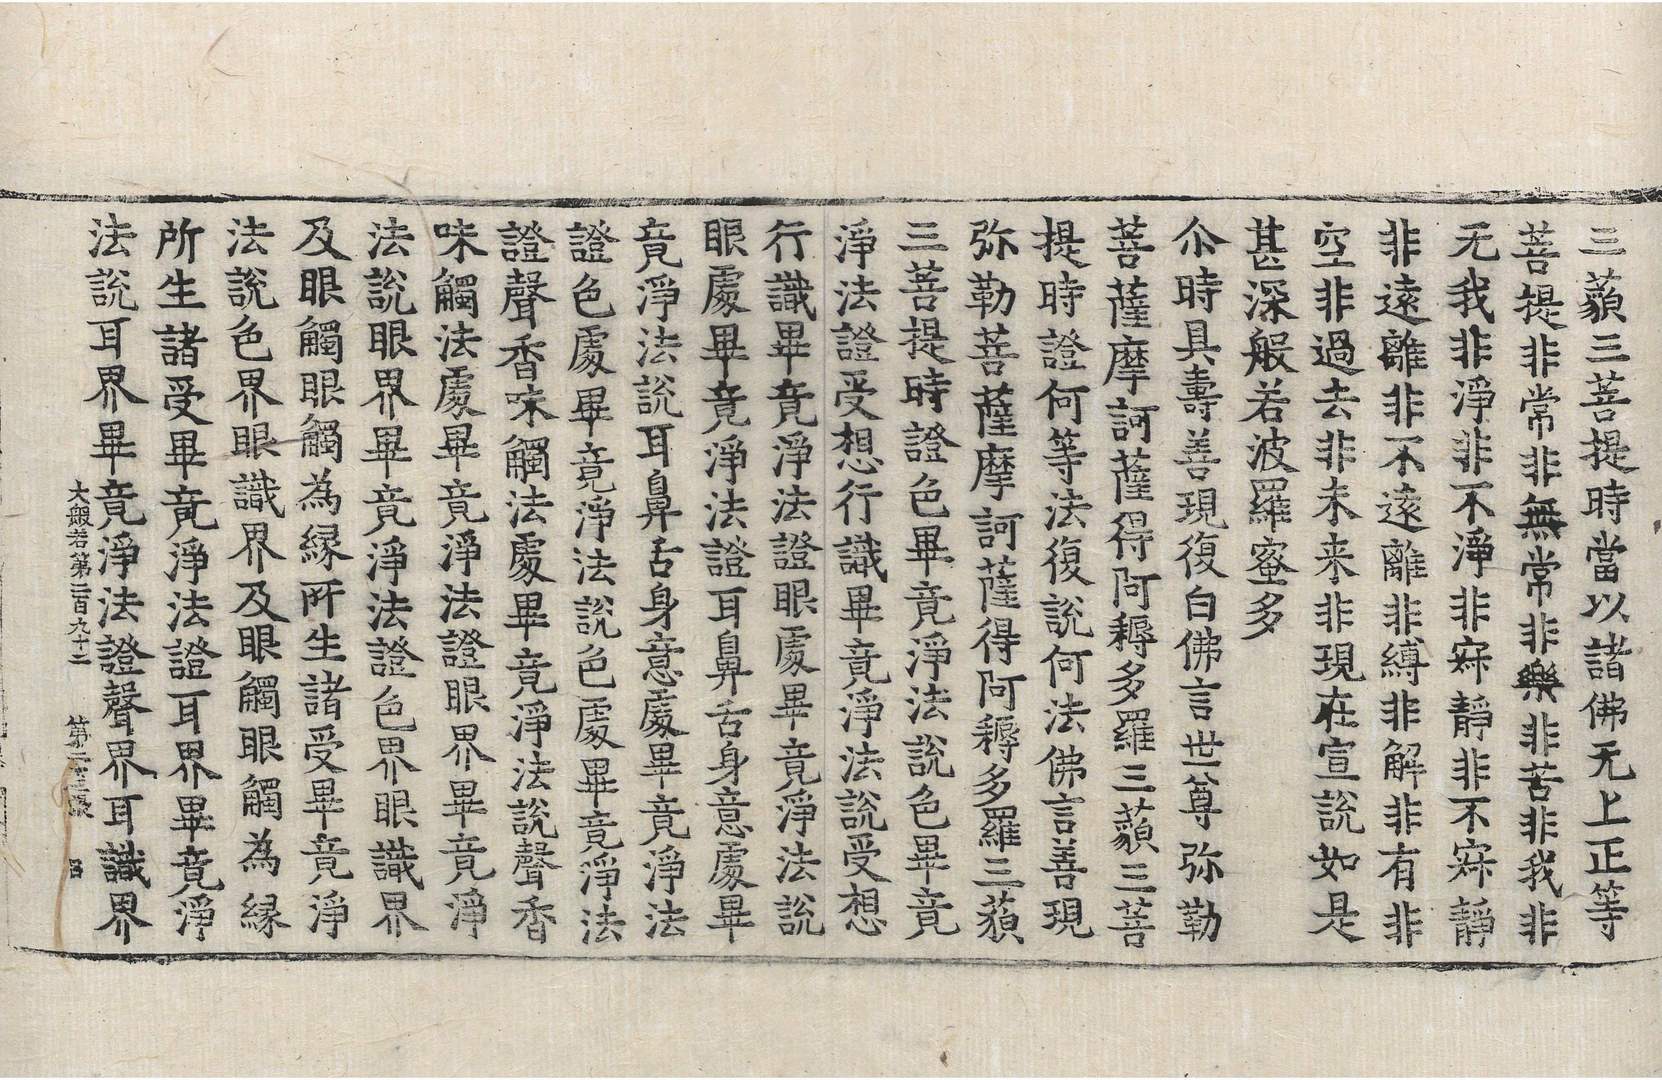 三藐三菩提時當以諸佛无上正等
菩提非常非無常非樂非苦非我非
无我非淨非不淨非寂靜非不寂靜
非遠離非不遠離非縛非解非有非
空非過去非未来非現在宣說如是
甚深般若波羅蜜多
尒時具壽善現復白佛言世尊弥勒
菩薩摩訶薩得阿耨多羅三藐三菩
提時證何等法復說何法佛言善現
弥勒菩薩摩訶薩得阿耨多羅三藐
三菩提時證色畢竟淨法說色畢竟
淨法證受想行識畢竟淨法說受想
行識畢竟淨法證眼處畢竟淨法說
眼處畢竟淨法證耳鼻舌身意處畢
竟淨法說耳鼻舌身意處畢竟淨法
證色處畢竟淨法說色處畢竟淨法
證聲香味觸法處畢竟淨法說聲香
味觸法處畢竟淨法證眼界畢竟淨
法說眼界畢竟淨法證色界眼識界
及眼觸眼觸為緣所生諸受畢竟淨
法說色界眼識界及眼觸眼觸為緣
所生諸受畢竟淨法證耳界畢竟淨
法說耳界畢竟淨法證聲界耳識界
大般若第二百九十二 第